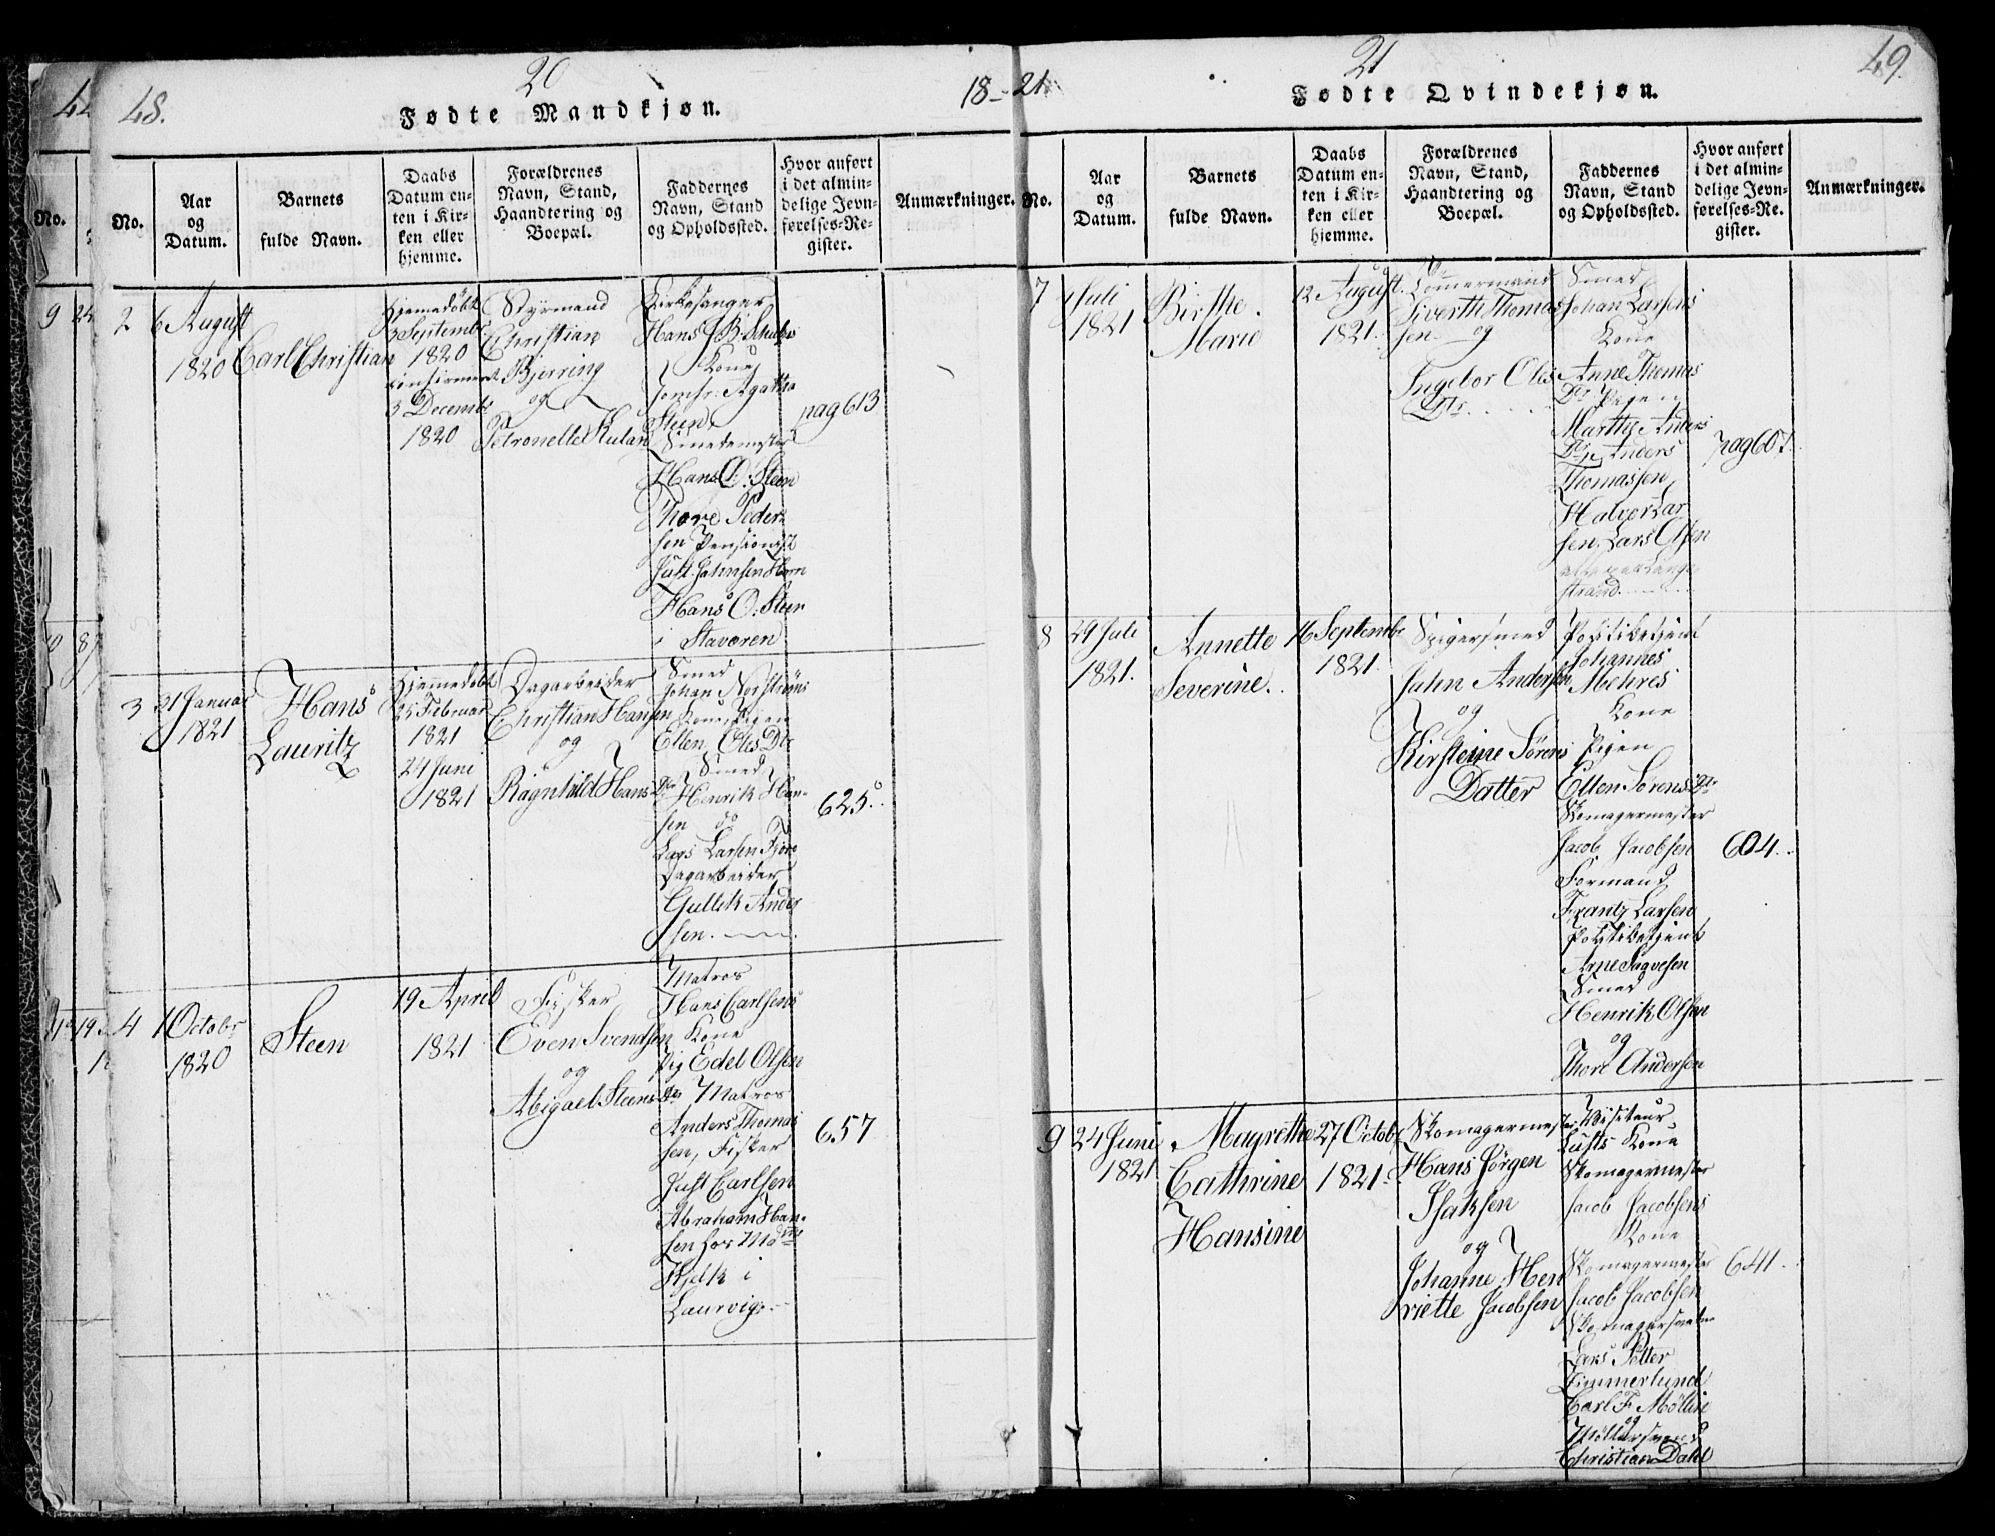 48.
20
18-21
Fødte Mandkjøn.
No.
Aar
og
Datum.
Barnets
fulde Navn.
Daabs
Datum en-
ten i Kir-
ken eller
hjemme.
Forældrenes
Navn, Stand,
Haandtering og
Boepæl.
Faddernes
Navn, Stand
og Opholdssted.
Hvor anført
i det almin-
delige Jevn-
førelses-Re-
gister.
Anmærkninger.
2
6 August
1820
Carl Christian
Hjemmedøbt
3 Septembr
1820
confirmeret
3 Decembr
1820
Styrmand
Christian
Bjerring
og
Petronelle
Kirkesanger
Hans J. B.
Kone
Jomfr: Agatha
Steen
Smedemester
Hans O: Steen
Thore Peder
sen Pensionist
Just Jahnsen Horn
Hans O: Steen
i Staværen
pag 613
3
31 Januar
1821
Hans
Lauritz
Hjemmedøbt
25 Februar
1821
24 Juni
1821
Dagarbeider
Christian Hansen
og
Ragnhild Hans Dtr
Smed
Johan Norstrøms
Kone, Pigen
Ellen Oles Dtr
Smed
Henrik Han-
sen do
Lars Larsen
Dagarbeider
Gullik Ander
sen.
625.
4
1 Octobr
1820
Steen
19 April
1821
Fisker
Even Svendsen
og
Abigael Steens Dtr
Matros
Hans Carlsens
Kone
Pig Edel Olsen
Matros
Anders Thomas
sen, Fisker
Just Carlsen
Abraham Han-
sen hos Mad
Hjelk i
Laurvig.
657
21
49.
Fødte Qvindekjøn.
No.
Aar
og
Datum.
Barnets
fulde Navn.
Daabs
Datum en-
ten i Kir-
ken eller
hjemme.
Forældrenes
Navn, Stand,
Haandtering og
Boepæl.
Faddernes
Navn, Stand
og Opholdssted.
Hvor anført
i det almin-
delige Jevn-
førelses-Re-
gister.
Anmærkninger.
7
1 Juli
1821
Birthe
Marie
12 August
1821.
Tømermand
Siverth Thomas
sen og
Ingebor Oles
Dtr.
Smed
Johan Larsens
Kone
Anne Thomas
Dtr Pigen
Marthe Anders
Dtr, Anders
Thomassen
Halvor Lar
sen, Lars Olsen
alle paa Lange
strand.
pag 607.
8
29 Juli
1821.
Annette
Severine.
16 Septembr
1821.
Spigersmed
Jahn Andersen
og
Kirsteine Sørens
Datter
Politibetjent
Johannes
Mehres
Kone
Pigen
Ellen Sørens Dtr
Skomagermester
Jacob Jacobsen
Formand
Frantz Larsen
Politibetjent
Arne Sagvesen
Smed
Henrik Olsen
og
Thore Andersen
604.
9
24 Juni
1821
Magrethe
Cathrine
Hansine
27 Octobr
1821.
Skomagermester
Hans Jørgen
Isaksen
og
Johanne Hen
riette Jacobsen
Visiteur
Lusts Kone
Skomagermester
Jacob Jacobsens
Kone
Skomagermester
Jacob Jacobsen
Skomagersvend
Lars Petter
Zimmerlund
Carl F. Møller
og
Møllersvend
Christian Dahl
641.